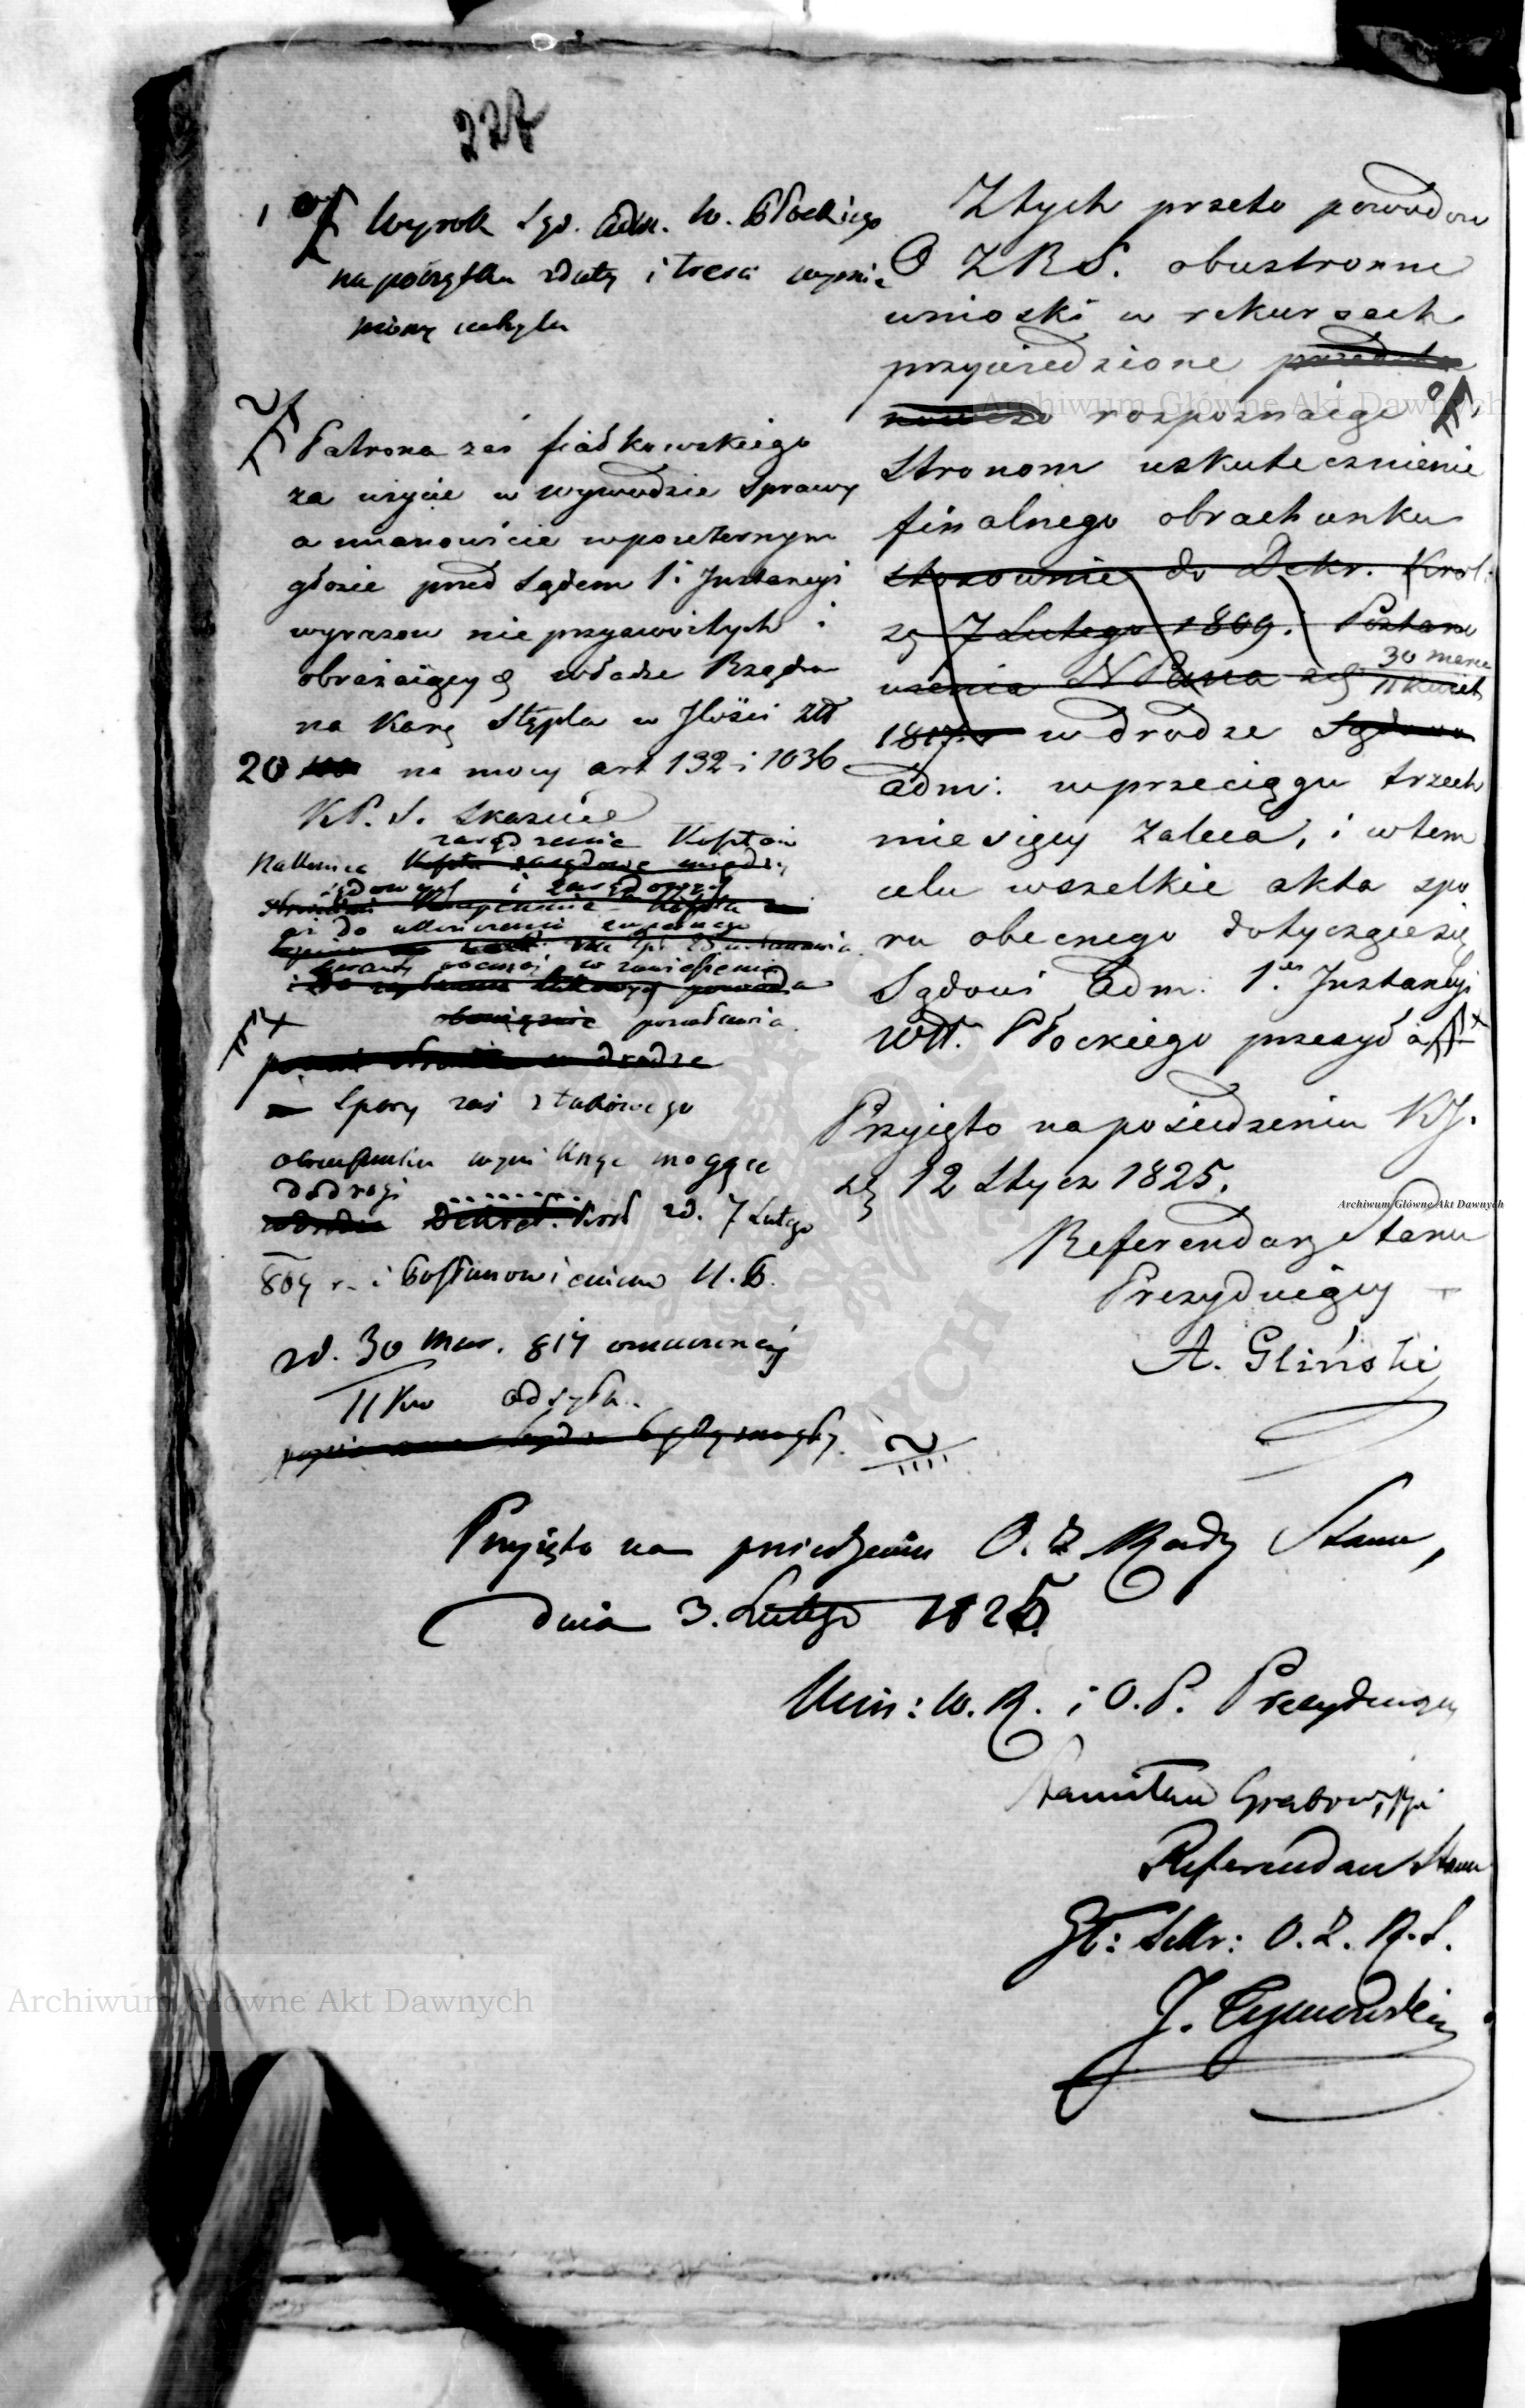 228
Wyrok Sąd. Adm. W. Płockiego
na początku z daty i treści wymie
niony uchyla
Patrona zaś Fiałkowskiego
za użycie w wywodzie Sprawy
a mianowicie w powtórnym
głosie przed Sądem 1. Instancyi
wyrazów nieprzyzwoitych i
obrażaiących władze Rządu
na karę Stępla w Ilości Złł
20 na mocy art 132 i 1036
K.P.S. skazuie
zarządzenie Kosztów
Nakoniec
sądowych i
aż do ukończenia
w zawieszeniu
pozostawia.
Spory zaś z takowego
obrachunku wyniknąć mogące
do drogi
Dekret. Król zd. 7 Lutego
809 r. i Postanowieniem N.P.
zd. 30 Mar. 817 oznaczonéy
11 Kw odsyła.
Z tych przeto powodów
O Z R S. obustronne
wnioski w rekursach
przywiedzione
rozpoznaiąc
Stronom uskutecznienie
finalnego obrachunku
stosownie do Dekr. Król.
zd 7 Lutego 1809. i Postano
wienia N Pana zd 30 marca
11 Kwiet
1817 r w drodze Sądowo
Adm: w przeciągu trzech
miesięcy zaleca, i w tem
celu wszelkie akta spo
ru obecnego dotyczące się
Sądowi Adm. 1. Instancyi
Wtt. Płockiego przesyła
Przyięto na posiedzeniu KJ.
zd 12 Stycz 1825.
Referendarz Stanu
Prezyduiący
A. Gliński
Przyięto na posiedzeniu O. Z Rady Stanu,
dnia 3. Lutego 1825.
Min: W. R. i O. P. Prezyduiący
Stanisław Grabowski
Referendarz Stanu
Gł: Sekr: O. Z. R. S.
Archiwum Główne Akt Dawnych
Archiwum Główne Akt Dawnych
Archiwum Główne Akt Dawnych